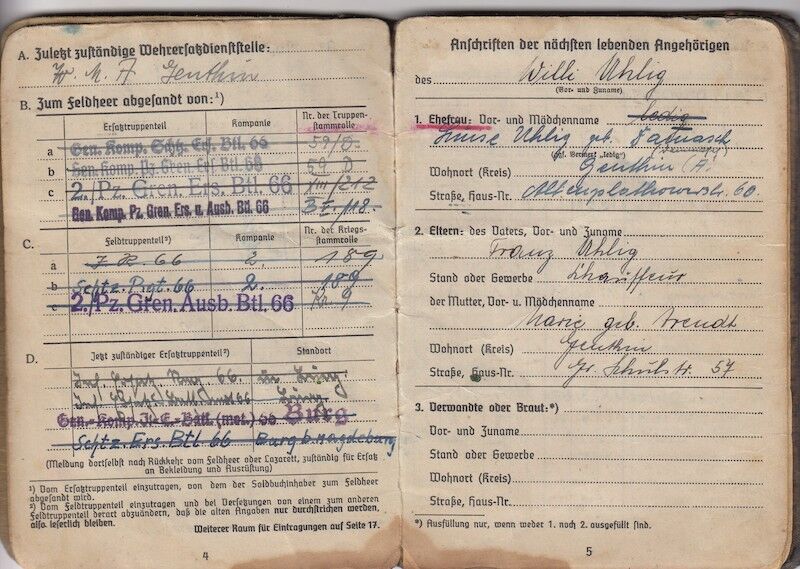 A. Zuletzt zuständige Wehrersatzdienststelle:
W. M. A Genthin
B. Zum Feldheer abgesandt von:¹)
Ersatztruppenteil Kompanie Nr. der Truppen-
stammrolle
a Gen. Komp. Schtz. Ers. Btl. 66 59/D
b Gen. Komp. Pz. Gren. Ers. Btl. 66 59 D
c 2./Pz. Gren. Ers. Btl. 66 XIII/212
Gen. Komp. Pz. Gren. Ers. u. Ausb. Btl. 66
C. Feldtruppenteil²) Kompanie Nr. der Kriegs-
stammrolle
a J.R. 66 2 189
b Schtz. Rgt. 66 2. 189
c 2./Pz. Gren. Ausb. Btl. 66 9
D. Jetzt zuständiger Ersatztruppenteil²) Standort
66. in Burg
66 Burg
Gen.-Komp. J.-E.-Batl. (mot.) 66 Burg
Schtz. Ers. Btl 66 Burg b. Magdeburg
(Meldung dortselbst nach Rückkehr vom Feldheer oder Lazarett, zuständig für Ersatz
an Bekleidung und Ausrüstung)
¹) Vom Ersatztruppenteil einzutragen, von dem der Soldbuchinhaber zum Feldheer
abgesandt wird.
²) Vom Feldtruppenteil einzutragen und bei Versetzungen von einem zum anderen
Feldtruppenteil derart abzuändern, daß die alten Angaben nur durchstrichen werden,
also leserlich bleiben.
Weiterer Raum für Eintragungen auf Seite 17.
4
Anschriften der nächsten lebenden Angehörigen
des Willi Uhlig
(Vor- und Zuname)
1. Ehefrau: Vor- und Mädchenname ledig
Uhlig geb.
(ggf. Vermerk „ledig")
Wohnort (Kreis) Genthin
Straße, Haus-Nr. Altenplathowerstr. 60.
2. Eltern: des Vaters, Vor- und Zuname
Franz Uhlig
Stand oder Gewerbe Chauffeur
der Mutter, Vor- u. Mädchenname
Marie geb. Arendt
Wohnort (Kreis) Genthin
Straße, Haus-Nr. Gr. Schulstr. 57
3. Verwandte oder Braut:*)
Vor- und Zuname
Stand oder Gewerbe
Wohnort (Kreis)
Straße, Haus-Nr.
*) Ausfüllung nur, wenn weder 1. noch 2. ausgefüllt sind.
5